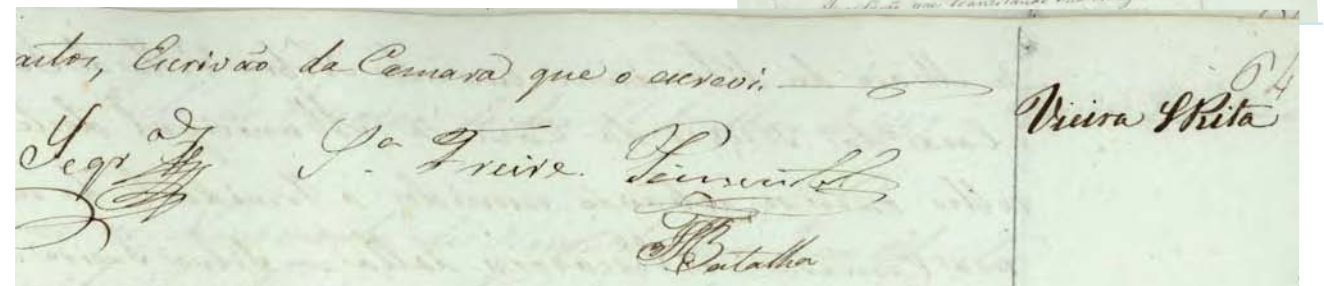 astos, Escrivão da Camara que o escrevi.
Segr.do S.a Freire. Pimentel
Batalha
64
Vieira SRita